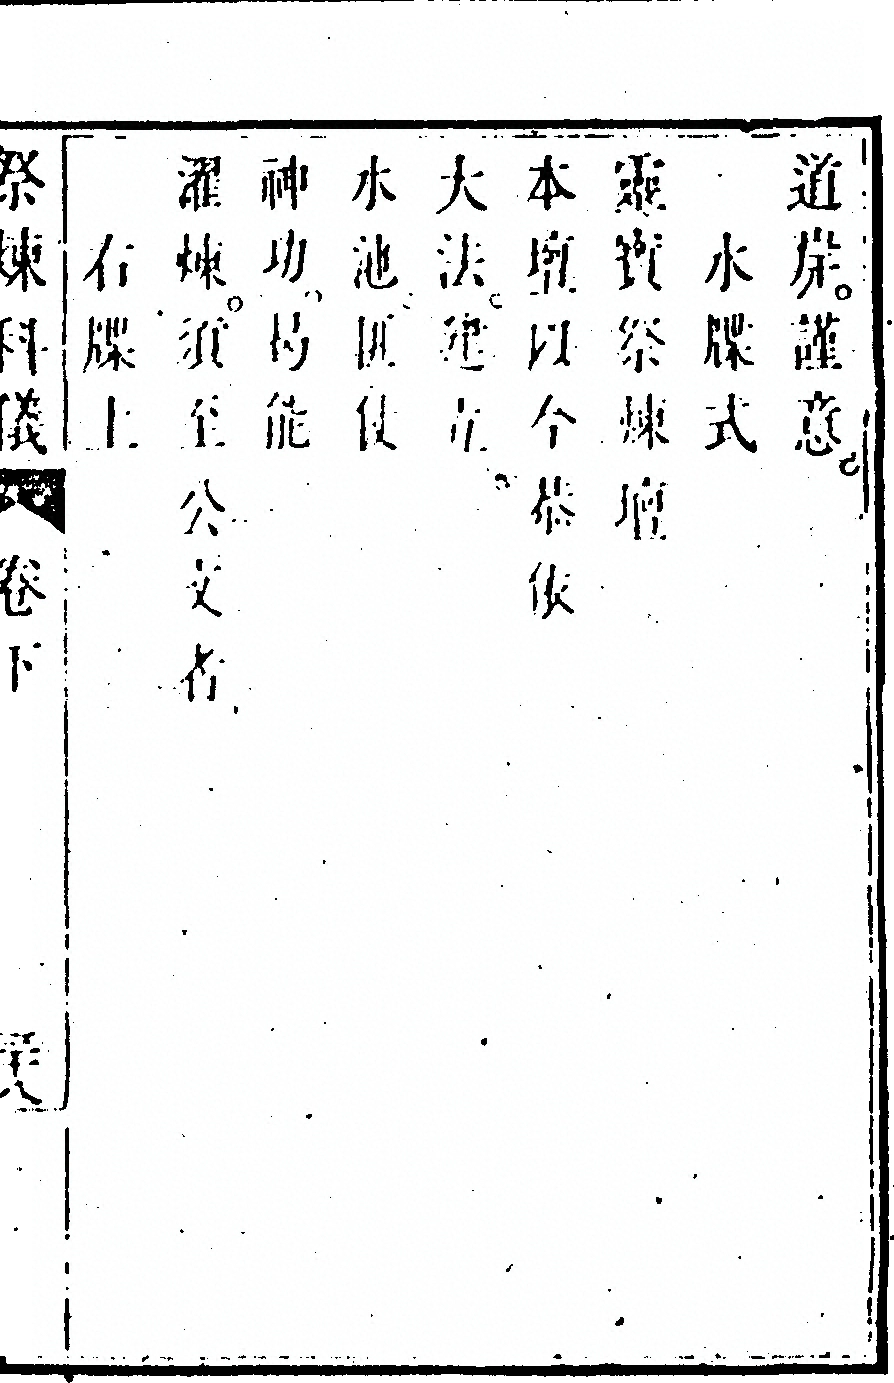 道岸。謹意。
水牒式
靈寶祭煉壇
本壇以今恭依
大法建立。
水池俱使
神功。曷能
濯煉。須至公文者
右牒上
祭煉科儀 卷下